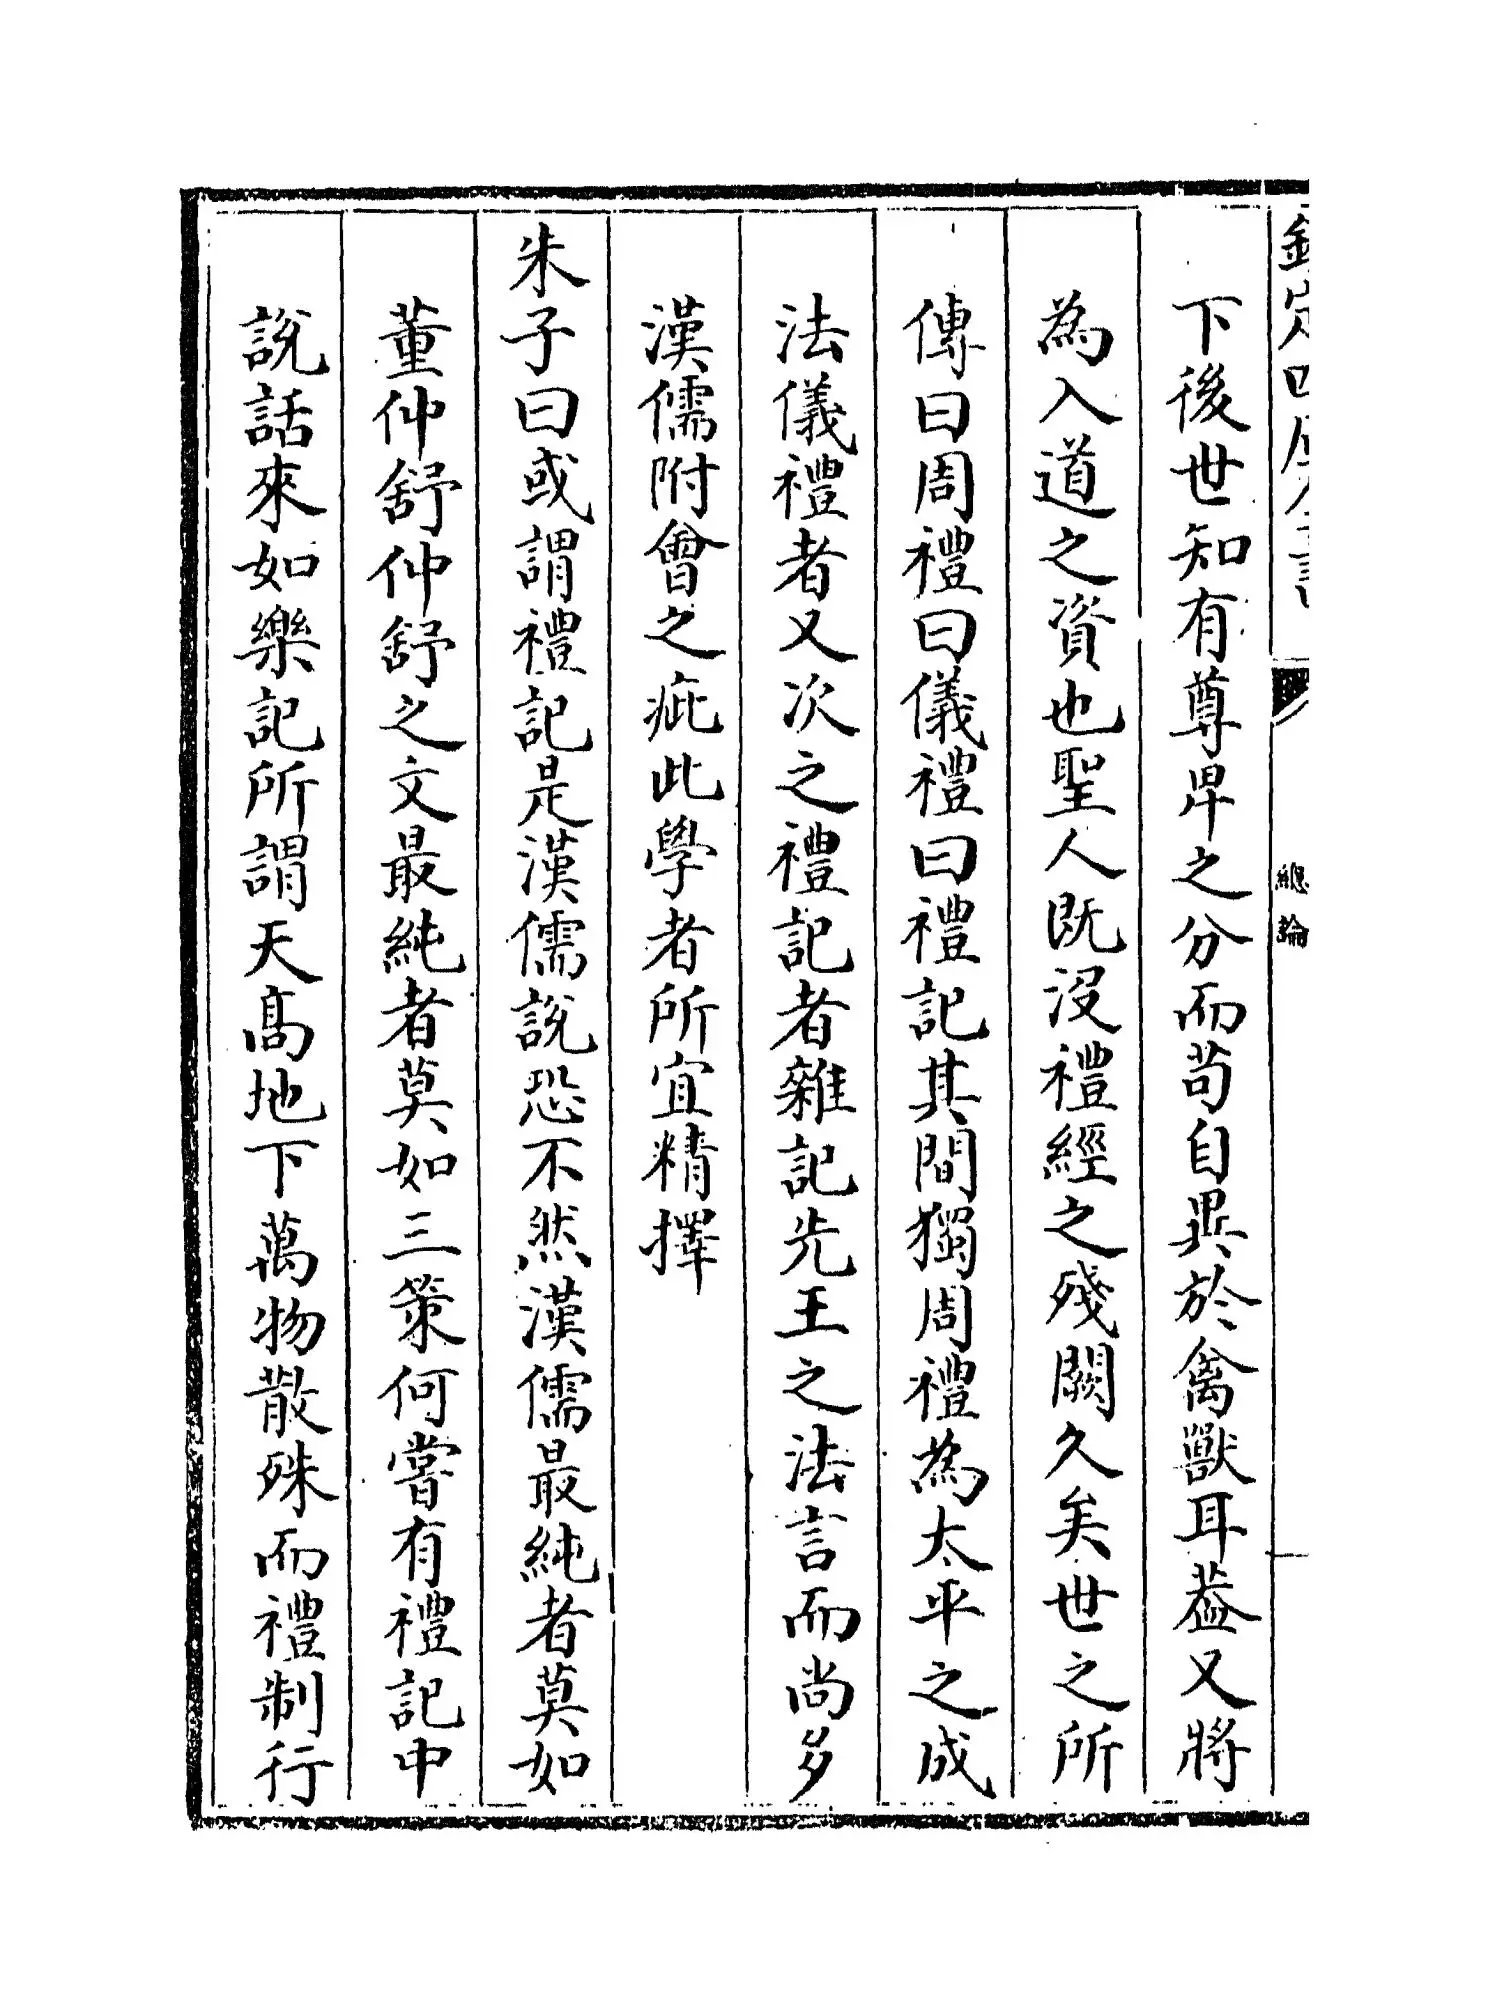 欽定四庫全書
總論
下後世知有尊卑之分而苟自異於禽獸耳葢又將
為入道之資也聖人既没禮經之殘闕久矣世之所
傳曰周禮曰儀禮曰禮記其間獨周禮為太平之成
法儀禮者又次之禮記者雜記先王之法言而尚多
漢儒附會之疵此學者所宜精擇
朱子曰或謂禮記是漢儒說恐不然漢儒最純者莫如
董仲舒仲舒之文最純者莫如三策何嘗有禮記中
說話來如樂記所謂天髙地下萬物散殊而禮制行